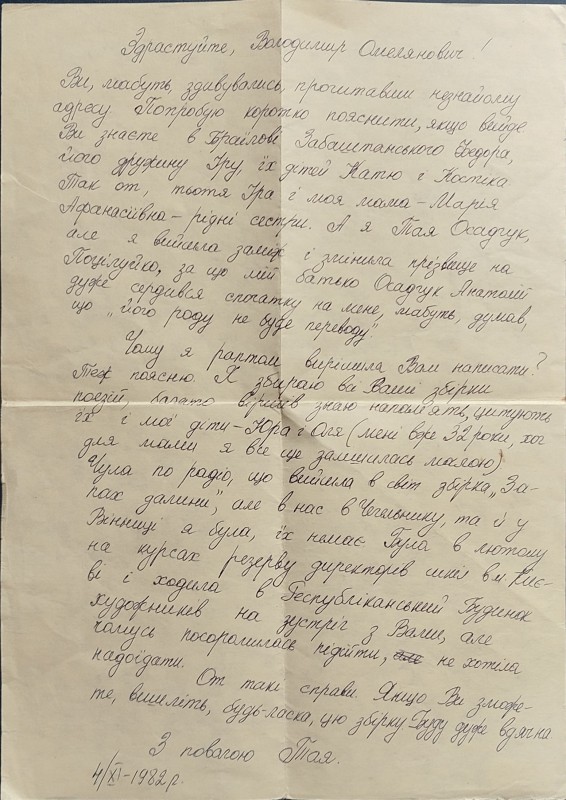 Здрастуйте, Володимир Омелянович!
Ви, мабуть, здивувались, прочитавши незнайому
адресу Попробую коротко пояснити, якщо вийде
Ви знаєте в Браїлові Забаштанського Федора,
його дружину Іру, їх дітей Катю і Костика
Так от, тьотя Іра і моя мама – Марія
Афанасіївна – рідні сестри. А я Тая Осадчук,
але я вийшла заміж і змінила прізвище на
Поцілуйко, за що мій батько Осадчук Анатолій
дуже сердився спочатку на мене, мабуть, думав,
що „його роду не буде переводу".
Чому я раптом вирішила Вам написати?
Теж поясню. Я збираю всі Ваші збірки
поезій, багато віршів знаю напам'ять, цитують
їх і мої діти – Юра і Оля (мені вже 32 роки, хоч
для мами я все ще залишилась малою)
Чула по радіо, що вийшла в світ збірка „За-
пах далини", але в нас в Чечельнику, та й у
Вінниці я була, їх немає Була в лютому
на курсах резерву директорів шкіл в м. Киє-
ві і ходила в Республіканський Будинок
художників на зустріч з Вами, але
чомусь посоромилась підійти, не хотіла
надоїдати.
От такі справи. Якщо Ви зможе-
те, вишліть, будь-ласка, цю збірку Буду дуже вдячна
З повагою Тая.
4/XI-1982 р.